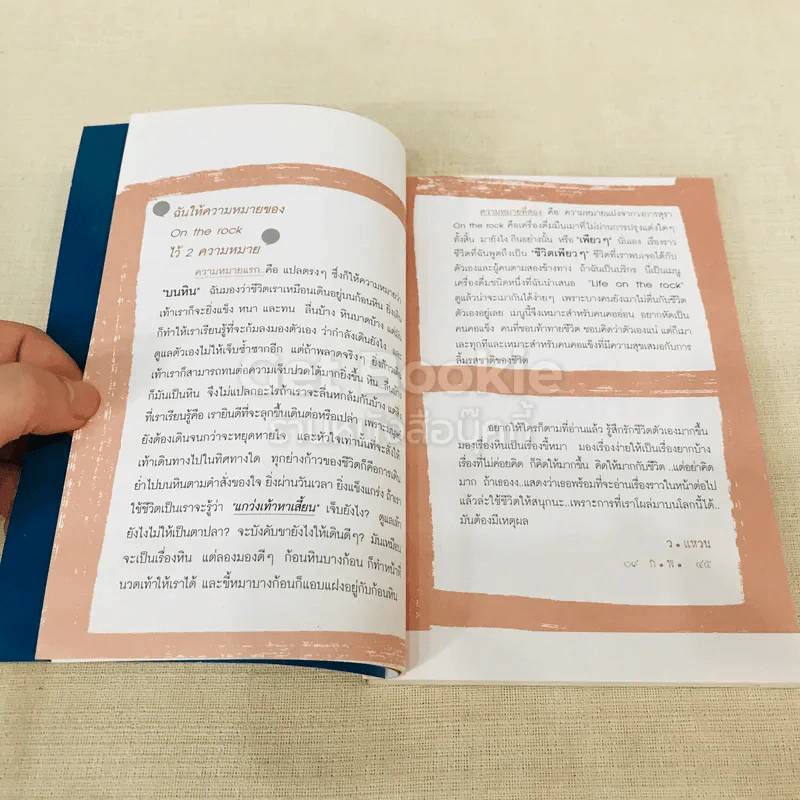 ฉันให้ความหมายของ
On the rock
ไว้ 2 ความหมาย
ความหมายแรก..คือ แปลตรงๆ ซึ่งก็ให้ความหมายว่า
"บนหิน" ฉันมองว่าชีวิตเราเหมือนเดินอยู่บนก้อนหิน ยิ่งเดิน
เท้าเราก็จะยิ่งแข็ง หนา และทน ลื่นบ้าง หินบาดบ้าง แต่มัน
ก็ทำให้เราเรียนรู้ที่จะก้มลงมองตัวเอง ว่ากำลังเดินยังไง และ
ดูแลตัวเองไม่ให้เจ็บซ้ำซากอีก แต่ถ้าพลาดจริงๆ ยิ่งก้าวเดิน
เท้าเราก็สามารถทนต่อความเจ็บปวดได้มากยิ่งขึ้น หิน
ก็มันเป็นหิน จึงไม่แปลกอะไรถ้าเราจะลื่นหกล้มกันบ้าง แต่สิ่ง
ที่เราเรียนรู้คือ เรายินดีที่จะลุกขึ้นเดินต่อหรือเปล่า เพราะมนุษย์
ยังต้องเดินจนกว่าจะหยุดหายใจ และหัวใจเท่านั้นที่จะสั่งให้
เท้าเดินทางไปในทิศทางใด ทุกย่างก้าวของชีวิตก็คือการเดิน
ย่ำไปบนหินตามคำสั่งของใจ ยิ่งผ่านวันเวลา ยิ่งแข็งแกร่ง ถ้าเรา
ใช้ชีวิตเป็นเราจะรู้ว่า "แกว่งเท้าหาเสี้ยน" เจ็บยังไง? ดูแลเท้า
ยังไงไม่ให้เป็นตาปลา? จะบังคับขายังไงให้เดินดีๆ? มันเหมือน
จะเป็นเรื่องหิน แต่ลองมองดีๆ ก้อนหินบางก้อน ก็ทำหน้าที่
นวดเท้าให้เราได้ และขี้หมาบางก้อนก็แอบแฝงอยู่กับก้อนหิน
ความหมายที่สอง คือ ความหมายแฝงจากวงการสุรา
On the rock คือเครื่องดื่มมึนเมาที่ไม่ผ่านการปรุงแต่งใดๆ
ทั้งสิ้น มายังไง กินอย่างนั้น หรือ "เพียวๆ" นั่นเอง เรื่องราว
ชีวิตที่ฉันพูดถึงเป็น "ชีวิตเพียวๆ" ชีวิตที่เราพบเจอได้กับ
ตัวเองและผู้คนตามสองข้างทาง ถ้าฉันเป็นบริกร นี่เป็นเมนู
เครื่องดื่มชนิดหนึ่งที่ฉันนำเสนอ "Life on the rock"
ดูแล้วน่าจะเมากันได้ง่ายๆ เพราะบางคนยังเมาไม่ตื่นกับชีวิต
ตัวเองอยู่เลย เมนูนี้จึงเหมาะสำหรับคนคออ่อน อยากหัดเป็น
คนคอแข็ง คนที่ชอบท้าทายชีวิต ชอบคิดว่าตัวเองแน่ แต่ก็เมา
เละทุกทีและเหมาะสำหรับคนคอแข็งที่มีความสุขเสมอกับการ
ลิ้มรสชาติของชีวิต
Get Bookie
ร้านหนังสือบุ๊คกี้
อยากให้ใครก็ตามที่อ่านแล้ว รู้สึกรักชีวิตตัวเองมากขึ้น
มองเรื่องหินเป็นเรื่องขี้หมา มองเรื่องง่ายให้เป็นเรื่องยากบ้าง
เรื่องที่ไม่ค่อยคิด ก็คิดให้มากขึ้น คิดให้มากกับชีวิต ..แต่อย่าคิด
มาก ถ้าเธองง..แสดงว่าเธอพร้อมที่จะอ่านเรื่องราวในหน้าต่อไป
แล้วล่ะใช้ชีวิตให้สนุกนะ..เพราะการที่เราโผล่มาบนโลกนี้ได้..
มันต้องมีเหตุผล
ว.แหวน
๐๙ ก.พ. ๔๕